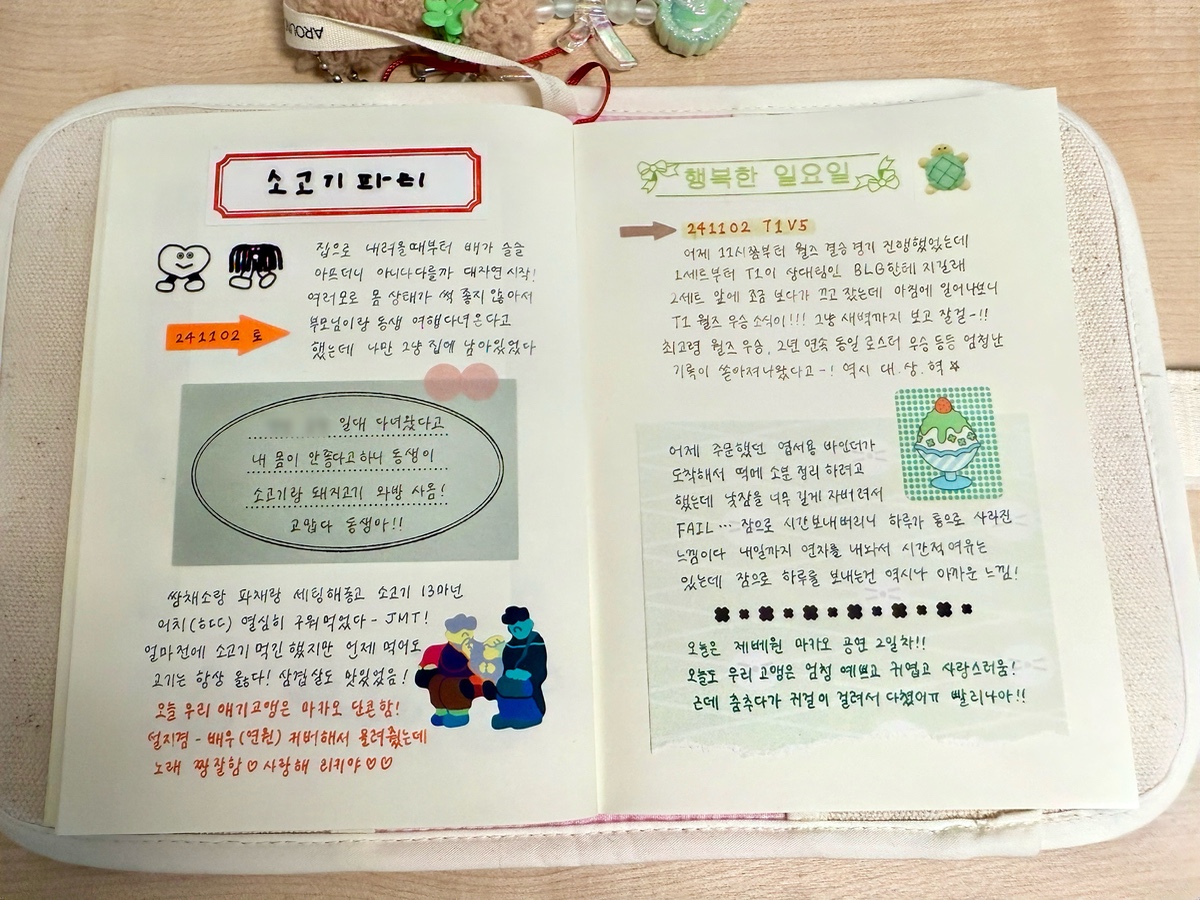 AROUN
소고기 파티
집으로 내려올때부터 배가 슬슬
아프더니 아니나다를까 대자연 시작!
여러모로 몸 상태가 썩 좋지 않아서
241102 토
부모님이랑 동생 여행다녀온다고
했는데 나만 그냥 집에 남아있었다
일대 다녀왔다고
내 몸이 안좋다고하니 동생이
소고기랑 돼지고기 와방 사옴!
고맙다 동생아!!
쌈채소랑 파채랑 세팅해놓고 소고기 13마넌
어치(ㅎㄷㄷ) 열심히 구워먹었다- JMT!
얼마전에 소고기 먹긴 했지만 언제 먹어도
고기는 항상 옳다! 삼겹살도 맛있었음!
오늘 우리 애기고앵은 마카오 단콘함!
설지겸 - 배우(연원) 커버해서 올려줬는데
노래 짱잘함♡ 사랑해 리키야♡♡
행복한 일요일
241102 T1 V5
어제 11시쯤부터 월즈 결승경기 진행했었는데
1세트부터 T1이 상대팀인 BLG한테 지길래
2세트 앞에 조금 보다가 끄고 잤는데 아침에 일어나보니
T1 월즈 우승 소식이!!! 그냥 새벽까지 보고 잘걸-!!
최고령 월즈 우승, 2년 연속 동일 로스터 우승 등등 엄청난
기록이 쏟아져나왔다고-! 역시 대.상.혁☆
어제 주문했던 엽서용 바인더가
도착해서 떡메 소분 정리 하려고
했는데 낮잠을 너무 길게 자버려서
FAIL… 잠으로 시간보내버리니 하루가 통으로 사라진
느낌이다 내일까지 연차를 내놔서 시간적 여유는
있는데 잠으로 하루를 보내는건 역시나 아까운 느낌!
오늘은 제베원 마카오 공연 2일차!!
오늘도 우리 고앵은 엄청 예쁘고 귀엽고 사랑스러움!
근데 춤추다가 귀걸이 걸려서 다쳤어ㅠ 빨리나아!!